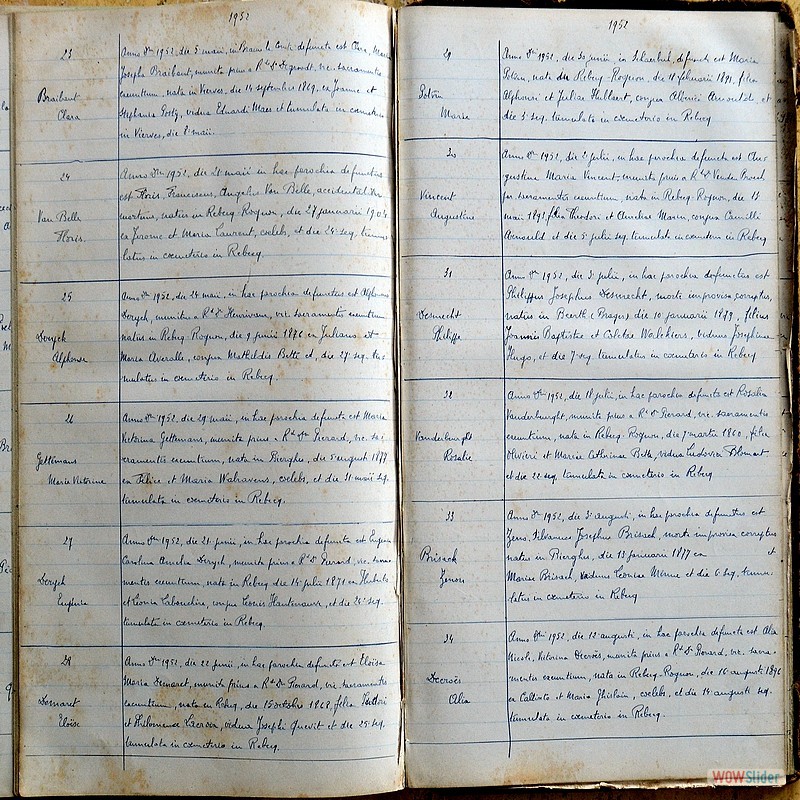 1952
23
Braibant
Clara
Anno Dni 1952, die 5 maii, in Braine le Comte defuncta est Clara, Maria
Josepha Braibant, munita prius a Rdo Do vic. sacramentis
exeuntium, nata in Vierves, die 14 septembris 1869, ex Joanne et
Stephania vidua Eduardi Maes et tumulata in cœmeterio
in Vierves, die 8 maii.
24
Van Belle
Floris.
Anno Dni 1952, die 21 maii in hac parochia defunctus
est Floris, Franciscus, Angelus Van Belle, accidentaliter
mortuus, natus in Rebecq Rognon, die 27 januarii 1904
ex Jerome et Maria Laurent, cœlebs, et die 24 seq. tumu-
latus in cœmeterio in Rebecq.
25
Deryck
Alphonse
Anno Dni 1952, die 24 maii, in hac parochia defunctus est Alphonsus
Deryck, munitus a Rdo Do vic. sacramentis exeuntium
natus in Rebecq Rognon, die 9 junii 1876 ex Juliano et
Maria conjux Mathildis Bette et, die 27 seq. tu-
mulatus in cœmeterio in Rebecq.
26
Gettemans
Marie Victorine
Anno Dni 1952, die 29 maii, in hac parochia defuncta est Maria
Victorina Gettemans, munita prius a Rdo Do Pierard, vic. sa-
cramentis exeuntium, nata in Bierghes, die 5 august 1877
ex Felice et Maria Walravens, cœlebs, et die 31 maii seq.
tumulata in cœmeterio in Rebecq.
27
Deryck
Eugénie
Anno Dni 1952, die 21 junii, in hac parochia defuncta est Eugenia
Carolina Amelia Deryck, munita prius a Rdo Do Pierard, vic. sacra-
mentis exeuntium, nata in Rebecq die 14 julii 1871 ex Huberto
et Leonia conjux Leonis et die 24 seq.
tumulata in cœmeterio in Rebecq.
28
Demaret
Eloïse
Anno Dni 1952, die 22 junii, in hac parochia defuncta est Eloïsa
Maria Demaret, munita prius a Rdo Do Pierard, vic. sacramentis
exeuntium, nata in Rebecq, die 15 octobris 1868, filia Isidori
et Philomenæ Lacroix, vidua Josephi Quevit et die 25 seq.
tumulata in cœmeterio in Rebecq.
1952
29
Potvin
Maria
Anno Dni 1952, die 30 junii, in defuncta est Maria
Potvin, nata in Rebecq Rognon, die 18 februarii 1891, filia
Alphonsi et Juliæ Hubbaert, conjux Albini et
die 3 seq. tumulata in cœmeterio in Rebecq
30
Vincent
Augustine
Anno Dni 1952, die 2 julii, in hac parochia defuncta est Au-
gustina Maria Vincent, munita prius a Rdo Vanden Bosch
sacramentis exeuntium, nata in Rebecq Rognon, die 13
maii 1891, filia Theodori et Amelinæ Marin, conjux Camilli
et die 5 julii seq. tumulata in cœmeterio in Rebecq
31
Desmecht
Philippe
Anno Dni 1952, die 3 julii, in hac parochia defunctus est
Philippus Josephus Desmecht, morte improvisa correptus,
natus in Beerthe (Bruges) die 10 januarii 1879, filius
Joannis Baptistæ et Coletæ Walckiers, viduus Josephinæ
Hugo, et die 7 seq. tumulatus in cœmeterio in Rebecq
32
Vanderburght
Rosalie
Anno Dni 1952, die 18 julii, in hac parochia defuncta est Rosalia
Vanderburght, munita prius a Rdo Do Pierard, vic. sacramentis
exeuntium, nata in Rebecq Rognon, die 7 martii 1860, filia
Olivieri et Mariæ Catharinæ Beth, vidua Ludovici Blomart
et die 22 seq. tumulata in cœmeterio in Rebecq
33
Brisack
Zénon
Anno Dni 1952, die 3 augusti, in hac parochia defunctus est
Zeno, Silvanus Josephus Brisack, morte improvisa correptus
natus in Bierghes, die 13 januarii 1877 ex et
Maria Brisack, viduus Leoniæ Minne et die 6 seq. tumu-
latus in cœmeterio in Rebecq
34
Decroës
Alia
Anno Dni 1952, die 12 augusti, in hac parochia defuncta est Alia
Nicole, Victorina Decroës, munita prius a Rdo Do Pierard, vic. sacra-
mentis exeuntium, nata in Rebecq Rognon, die 16 augusti 1896
ex Callixto et Maria Ghislain, cœlebs, et die 14 augusti seq.
tumulata in cœmeterio in Rebecq.
WOWSlider